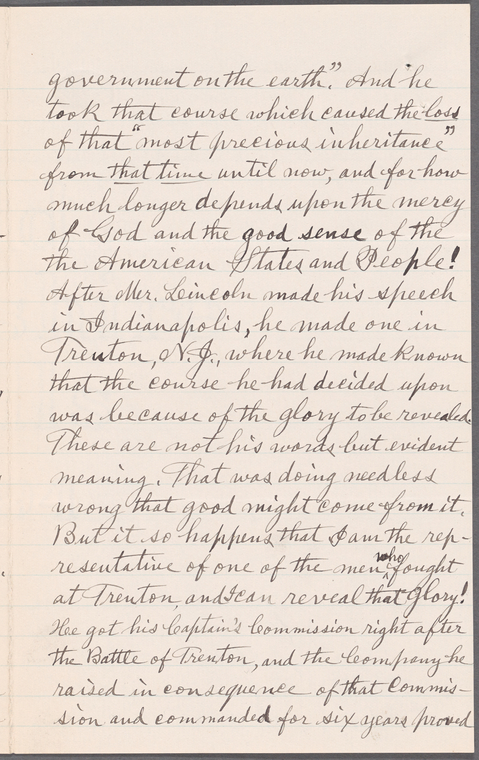 government on the earth". And he
took that course which caused the loss
of that "most precious inheritance"
from that time until now, and for how
much longer depends upon the mercy
of God and the good sense of the
the American States and People!
After Mr. Lincoln made his speech
in Indianapolis, he made one in
Trenton, N.J., where he made known
that the course he had decided upon
was because of the glory to be revealed.
These are not his words but evident
meaning. That was doing needless
wrong that good might come from it.
But it so happens that I am the rep-
resentative of one of the men who fought
at Trenton, and I can reveal that Glory!
He got his Captain's Commission right after
the Battle of Trenton, and the Company he
raised in consequence of that Commis-
sion and commanded for six years proved